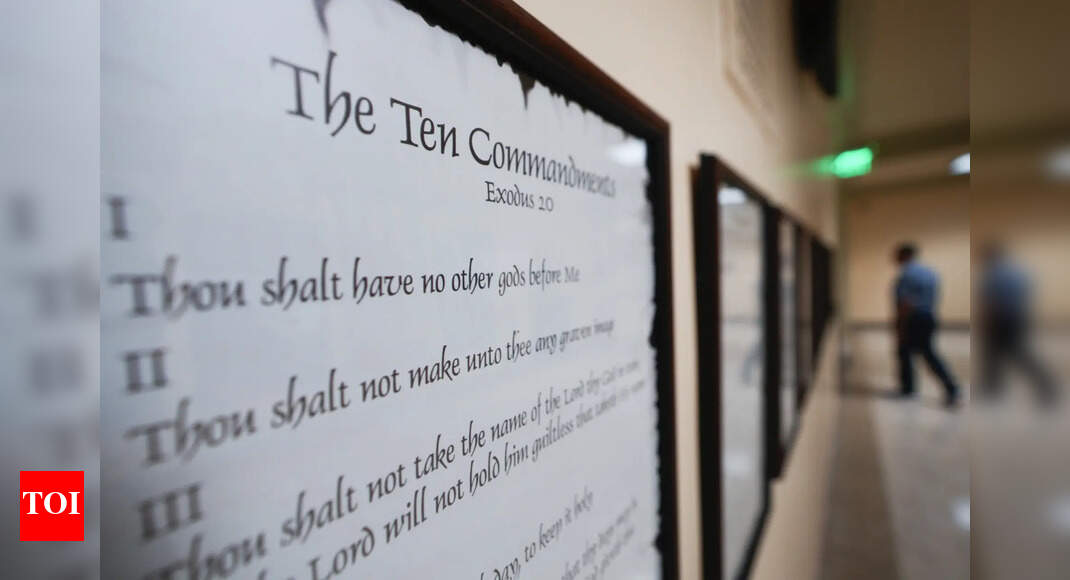 The Ten Commandments
Exodus 20
I
Thou shalt have no other gods before Me
II
Thou shalt not make unto thee any graven image
III
Thou shalt not take the name of the Lord thy God in vain
Lord will not hold him guiltless that taketh
day, to keep it holy
TOI